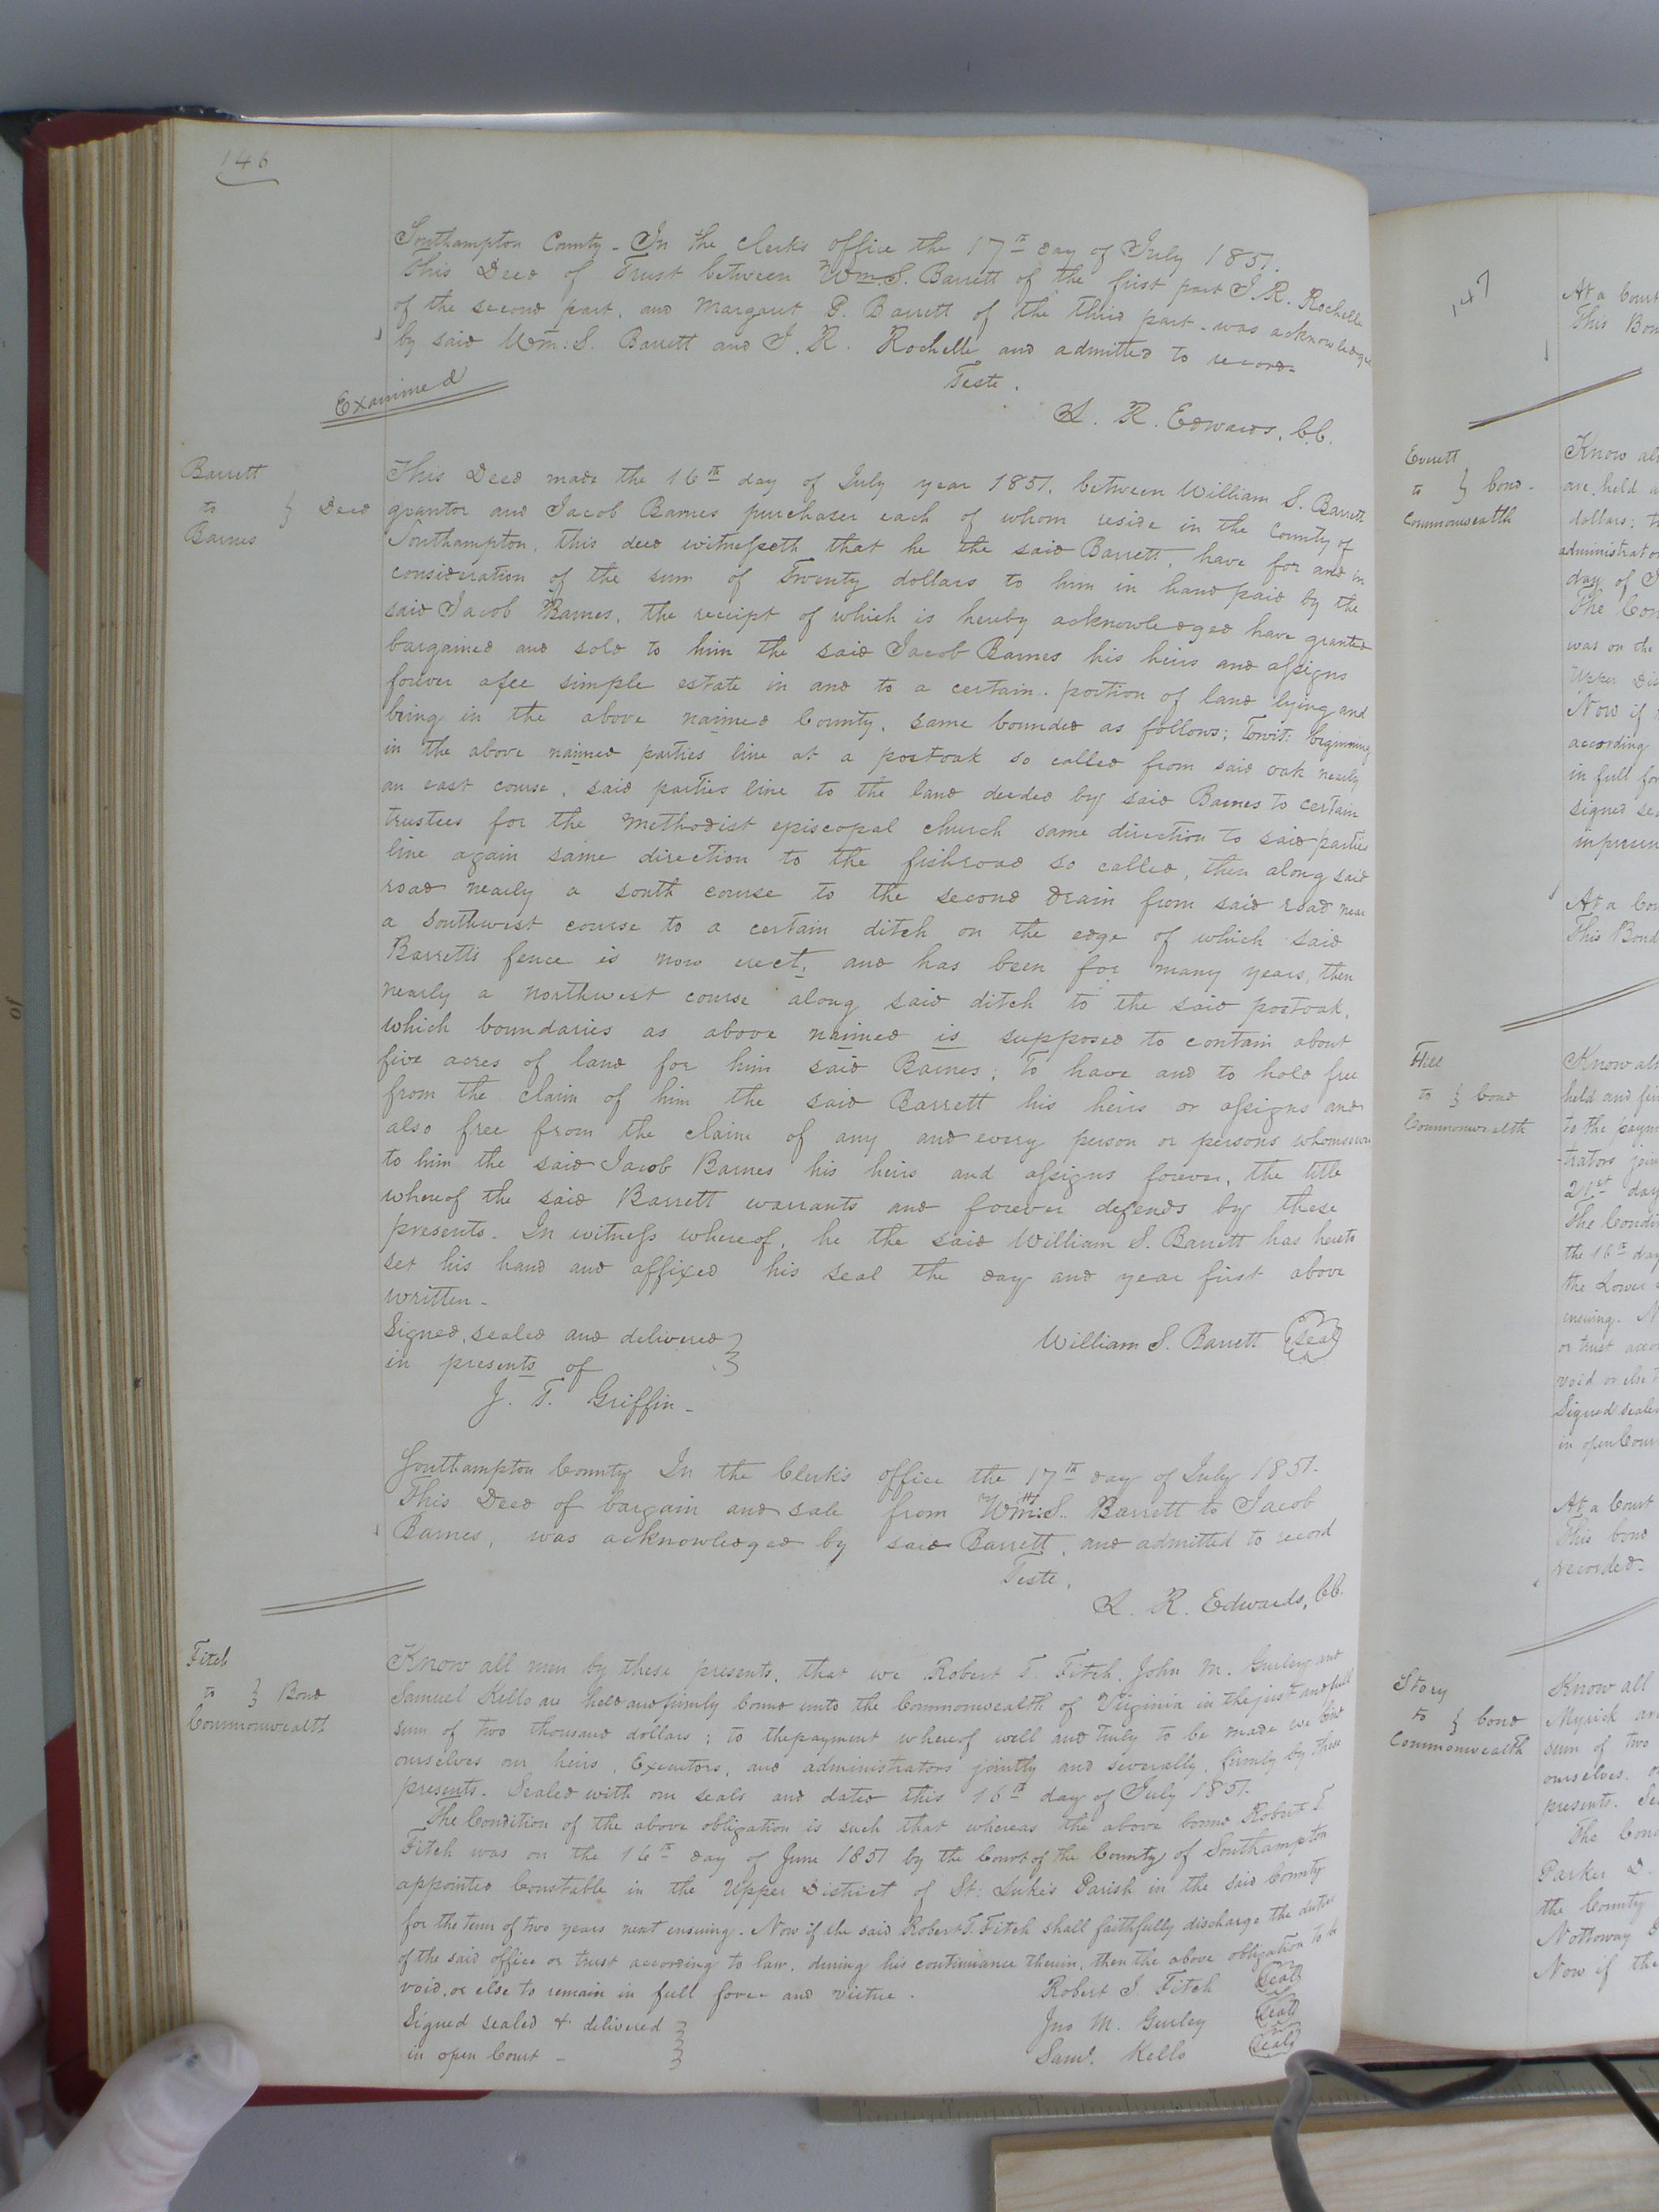 146
Southampton County - In the clerks office the 17th day of July 1851.
This Deed of Trust between Wm. S. Barrett of the first part J. R. Rochelle
of the second part, and Margaret P. Barrett of the third part - was acknowledge
by said Wm: S. Barrett and J. R. Rochelle and admitted to record
Teste.
L. R. Edwards, C.C.
Examined
Barrett
to } Deed
Barnes
This Deed made the 16th day of July year 1851, between William S. Barrett
grantor and Jacob Barnes purchaser each of whom reside in the County of
Southampton, this deed witnesseth that he the said Barrett, have for and in
consideration of the sum of Twenty dollars to him in hand paid by the
said Jacob Barnes, the receipt of which is hereby acknowledged have granted
bargained and sold to him the said Jacob Barnes his heirs and assigns
forever afee simple estate in and to a certain portion of land lying and
being in the above naimed County, same bounded as follows; Towit: beginning
in the above naimed parties line at a postoak so called from said oak nearly
an east course, said parties line to the land deeded by said Barnes to certain
trustees for the Methodist episcopal church same direction to said parties
line again same direction to the fishroad so called, then along said
road nearly a south course to the second drain from said road near
a Southwest course to a certain ditch on the edge of which said
Barretts fence is now erect, and has been for many years, then
nearly a northwest course along said ditch to the said postoak,
which boundaries as above naimed is supposed to contain about
five acres of land for him said Barnes; To have and to hold free
from the claim of him the said Barrett his heirs or assigns and
also free from the claim of any and every person or persons whomsoever
to him the said Jacob Barnes his heirs and assigns forever, the title
whereof the said Barrett warrants and forever defends by these
presents. In witness whereof, he the said William S. Barrett has hereto
set his hand and affixed his seal the day and year first above
written -
Signed, sealed and delivered }
in presents of
William S. Barrett (seal)
J. T. Griffin -
Southampton County In the Clerk's office the 17th day of July 1851.
This Deed of bargain and sale from Wm: S. Barrett to Jacob
Barnes, was acknowledged by said Barrett, and admitted to record
Teste,
L. R. Edwards, CC.
Fitch
to } Bond
Commonwealth
Know all men by these presents, that we Robert T. Fitch, John M. Gurley and
Samuel Kello are held and firmly bound unto the Commonwealth of Virginia in the just and full
sum of two thousand dollars; to the payment whereof well and truly to be made we bind
ourselves our heirs, Executors, and administrators jointly and severally, firmly by these
presents. Sealed with our seals and dated this 16th day of July 1851.
The Condition of the above obligation is such that whereas the above bound Robert T.
Fitch was on the 16th day of June 1851 by the Court of the County of Southampton
appointed Constable in the Upper District of St: Luke's Parish in the said County
for the term of two years next ensuing. Now if the said Robert T. Fitch shall faithfully discharge the duties
of the said office or trust according to law, during his continuance therein, then the above obligation to be
void, or else to remain in full force and virtue.
Robert T. Fitch (seal)
Signed sealed & delivered }
in open Court -
Jno M. Gurley (seal)
Saml. Kello (seal)
147
At a Court
This Bon
Everett
to } bond -
Commonwealth
Know all
are held a
dollars; t
administrato
day of J
The Con
was on the
Upper Dis
Now if
according
in full for
signed sea
in presen
At a Cou
This Bond
Hill
to } bond
Commonwealth
Know all
held and fir
to the paym
trators join
21st day
The Condi
the 16th day
the Lower
ensuing. N
or trust acco
void or else t
Signed seale
in open Cour
At a Court
This bond
recorded.
Story
to } bond
Commonwealth
Know all
Myrick an
sum of two
ourselves, o
presents. Se
The Cond
Parker D.
the County
Nottoway
Now if the